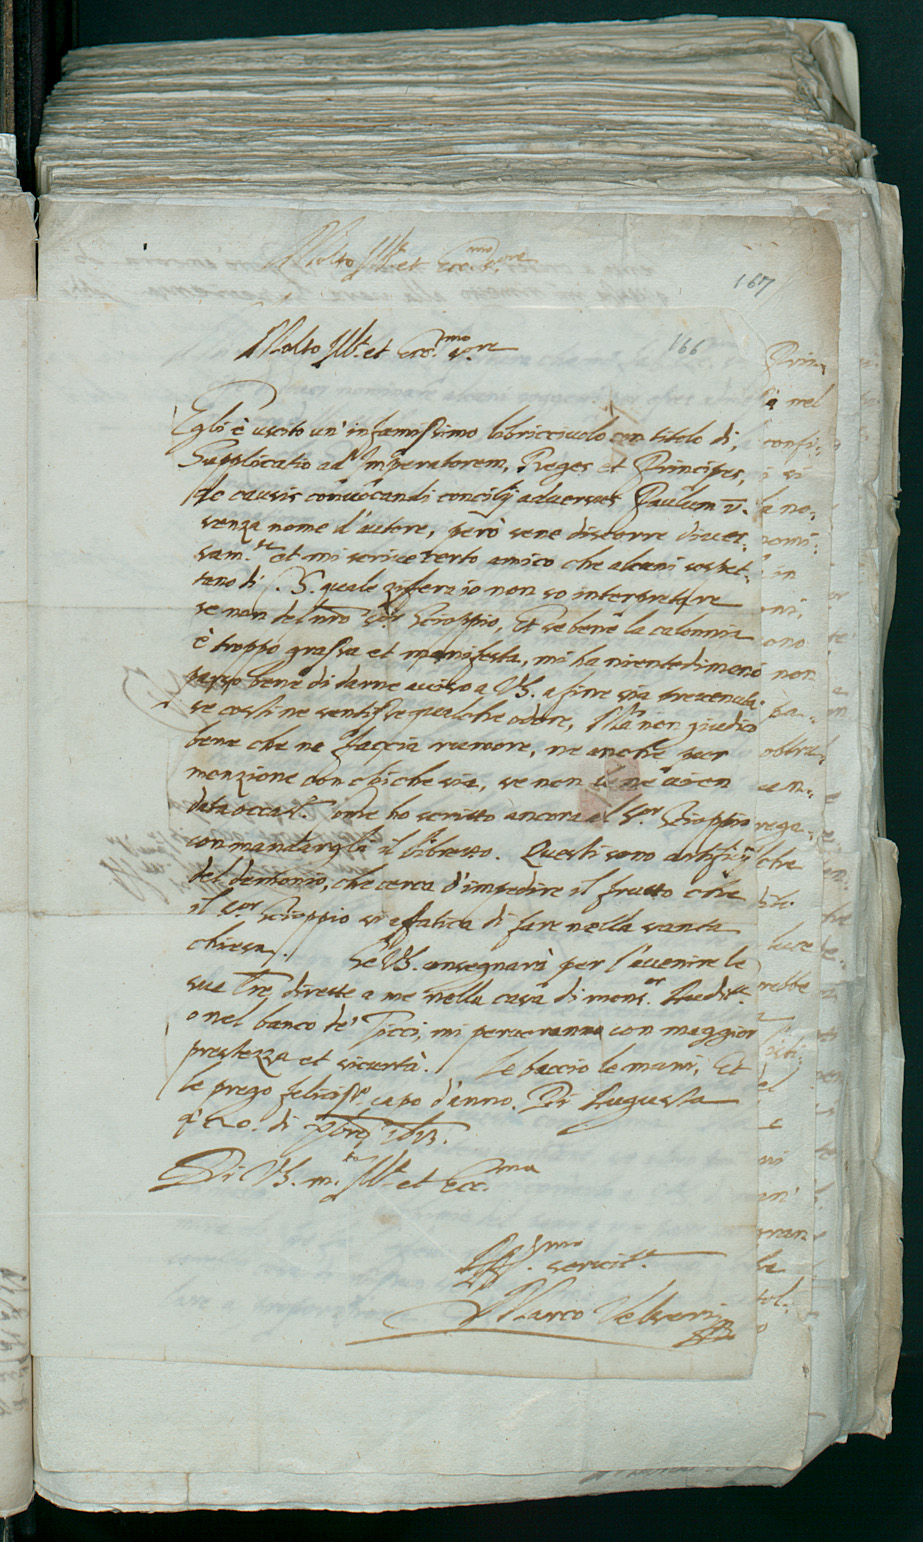 167
Molto Ill.re et Ecc.mo S.re
166
Molto Ill.re et Ecc.mo S.re
Egli è uscito un' infamissimo libricciuolo con titolo di,
Supplicatio ad Imperatorem, Reges et Principes,
de causis convocandi concilij adversus Paulum V.
senza nome d'autore, però sene discorre diver-
sam.te et mi scrive certo amico che alcuni sospet-
tano di . S. quale ziferzio non so interpretare
se non del nro Sor Scioppio, Et se bene la calonnia
è troppo grassa et manifesta, mi ha nientedimeno
parso bene di darne aviso a VS. a fine sia prevenuta
se costì ne sentisse qualche odore, Ma non giudico
bene che ne faccia rumore, ne anche per
menzione con chi che sia, se non le ne vien
data occas.e come ho scritto ancora al S.or Scioppio
con mandargli il libretto. Questi sono artificij
del demonio, che cerca d'impedire il frutto che
il S.or Scioppio si affatica di fare nella santa
chiesa. Se VS. consegnarà per l'avenire le
sue lre dirette a me nella casa di mons.or
o nel banco de' Ticci, mi perveranno con maggior
prestezza et sicurtà. Le baccio le mani, Et
le prego felicis.o capo d'anno. Di Augusta
di Xbre 1613.
Di VS. m.to Ill.re et Ecc.ma
Aff.mo servit.re
Marco Velseri